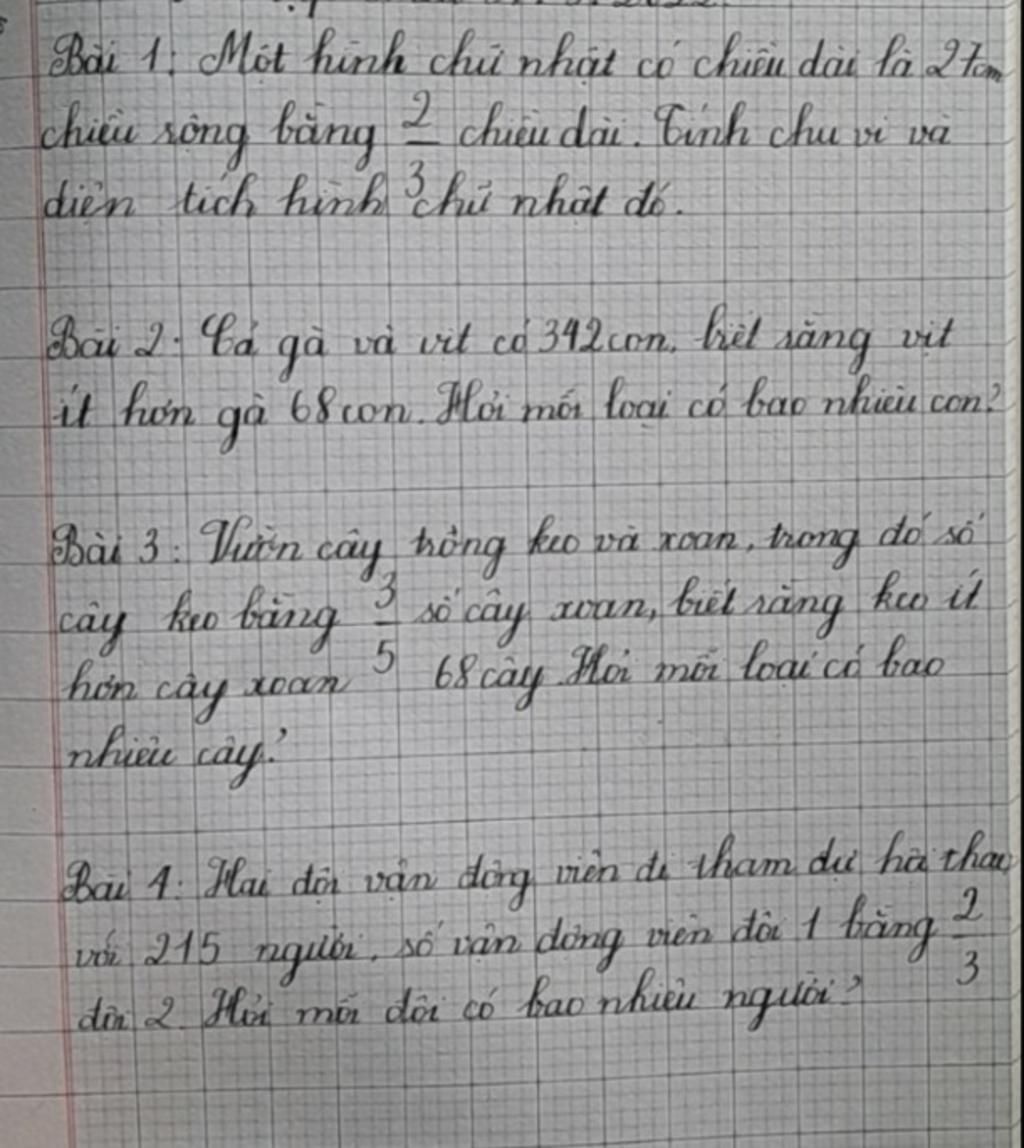 Bài 1: Một hình chữ nhật có chiều dài là 27cm
chiều rộng bằng 2/3 chiều dài. Tính chu vi và
diện tích hình chữ nhật đó.
Bài 2: Cả gà và vịt có 342 con, biết rằng vịt
ít hơn gà 68 con. Hỏi mỗi loại có bao nhiêu con?
Bài 3: Vườn cây trồng keo và xoan, trong đó số
cây keo bằng 3/5 số cây xoan, biết rằng keo ít
hơn cây xoan 68 cây. Hỏi mỗi loại có bao
nhiêu cây?
Bài 4: Hai đội vận động viên đi tham dự hội thao
với 215 người, số vận động viên đội 1 bằng 2/3
đội 2. Hỏi mỗi đội có bao nhiêu người?